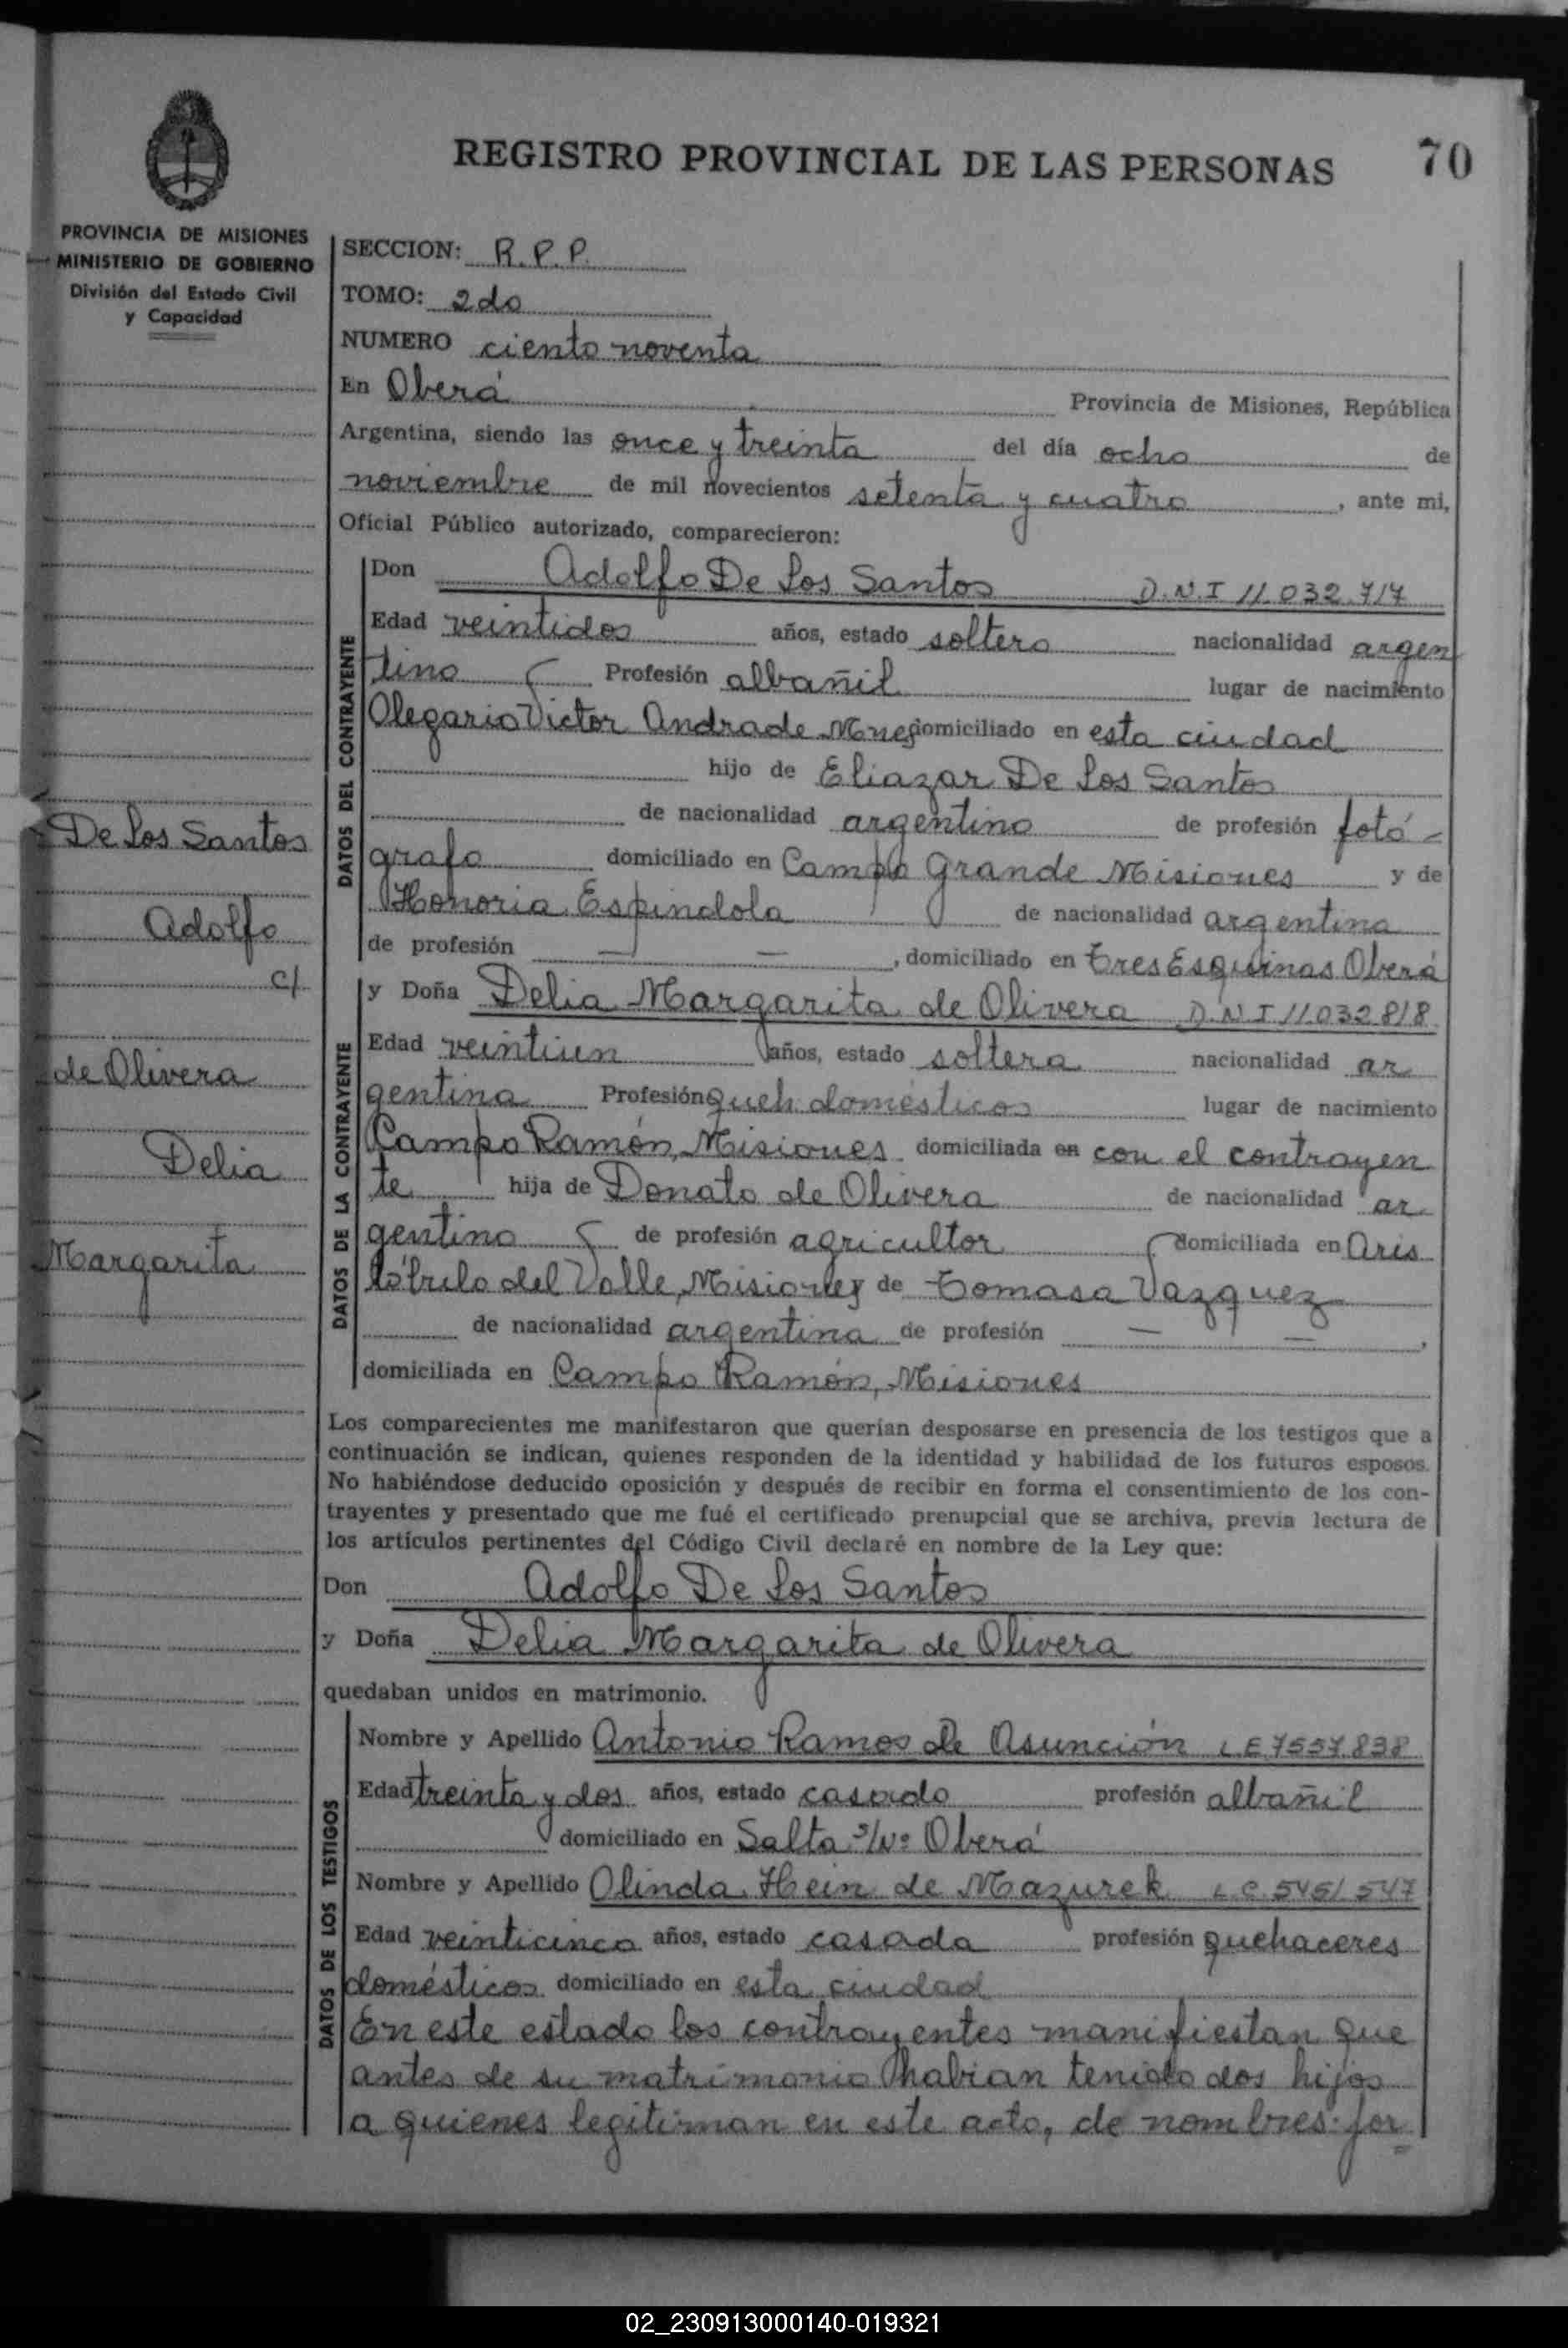 REGISTRO PROVINCIAL DE LAS PERSONAS 70
PROVINCIA DE MISIONES
MINISTERIO DE GOBIERNO
División del Estado Civil
y Capacidad
SECCION: R.P.P.
TOMO: 2do
NUMERO ciento noventa
En Oberá Provincia de Misiones, República
Argentina, siendo las once y treinta del día ocho de
noviembre de mil novecientos setenta y cuatro, ante mi,
Oficial Público autorizado, comparecieron:
DATOS DEL CONTRAYENTE
Don Adolfo De Los Santos D.N.I 11.032.717
Edad veintidos años, estado soltero nacionalidad argen
tino Profesión albañil lugar de nacimiento
Olegario Victor Andrade Mnes domiciliado en esta ciudad
hijo de Eliazar De Los Santos
de nacionalidad argentino de profesión fotó-
grafo domiciliado en Campo Grande Misiones y de
Honoria Espindola de nacionalidad argentina
de profesión — — , domiciliado en Tres Esquinas Oberá
De Los Santos
Adolfo
c/.
de Olivera
Delia
Margarita
DATOS DE LA CONTRAYENTE
y Doña Delia Margarita de Olivera D.N.I 11.032818
Edad veintiun años, estado soltera nacionalidad ar
gentina Profesión queh domésticos lugar de nacimiento
Campo Ramón, Misiones domiciliada en con el contrayen
te hija de Donato de Olivera de nacionalidad ar
gentino de profesión agricultor domiciliada en Aris
tóbulo del Valle, Misiones y de Tomasa Vazquez
de nacionalidad argentina de profesión — — ,
domiciliada en Campo Ramón, Misiones
Los comparecientes me manifestaron que querían desposarse en presencia de los testigos que a
continuación se indican, quienes responden de la identidad y habilidad de los futuros esposos.
No habiéndose deducido oposición y después de recibir en forma el consentimiento de los con-
trayentes y presentado que me fué el certificado prenupcial que se archiva, previa lectura de
los artículos pertinentes del Código Civil declaré en nombre de la Ley que:
Don Adolfo De Los Santos
y Doña Delia Margarita de Olivera
quedaban unidos en matrimonio.
DATOS DE LOS TESTIGOS
Nombre y Apellido Antonio Ramos de Asunción L.E 7557.838
Edad treinta y dos años, estado casado profesión albañil
domiciliado en Salta s/Nº Oberá
Nombre y Apellido Olinda Hein de Mazurek L.C. 5451547
Edad veinticinco años, estado casada profesión quehaceres
domésticos domiciliado en esta ciudad
En este estado los contrayentes manifiestan que
antes de su matrimonio habian tenido dos hijos
a quienes legitiman en este acto, de nombres: Jor
02_230913000140-019321